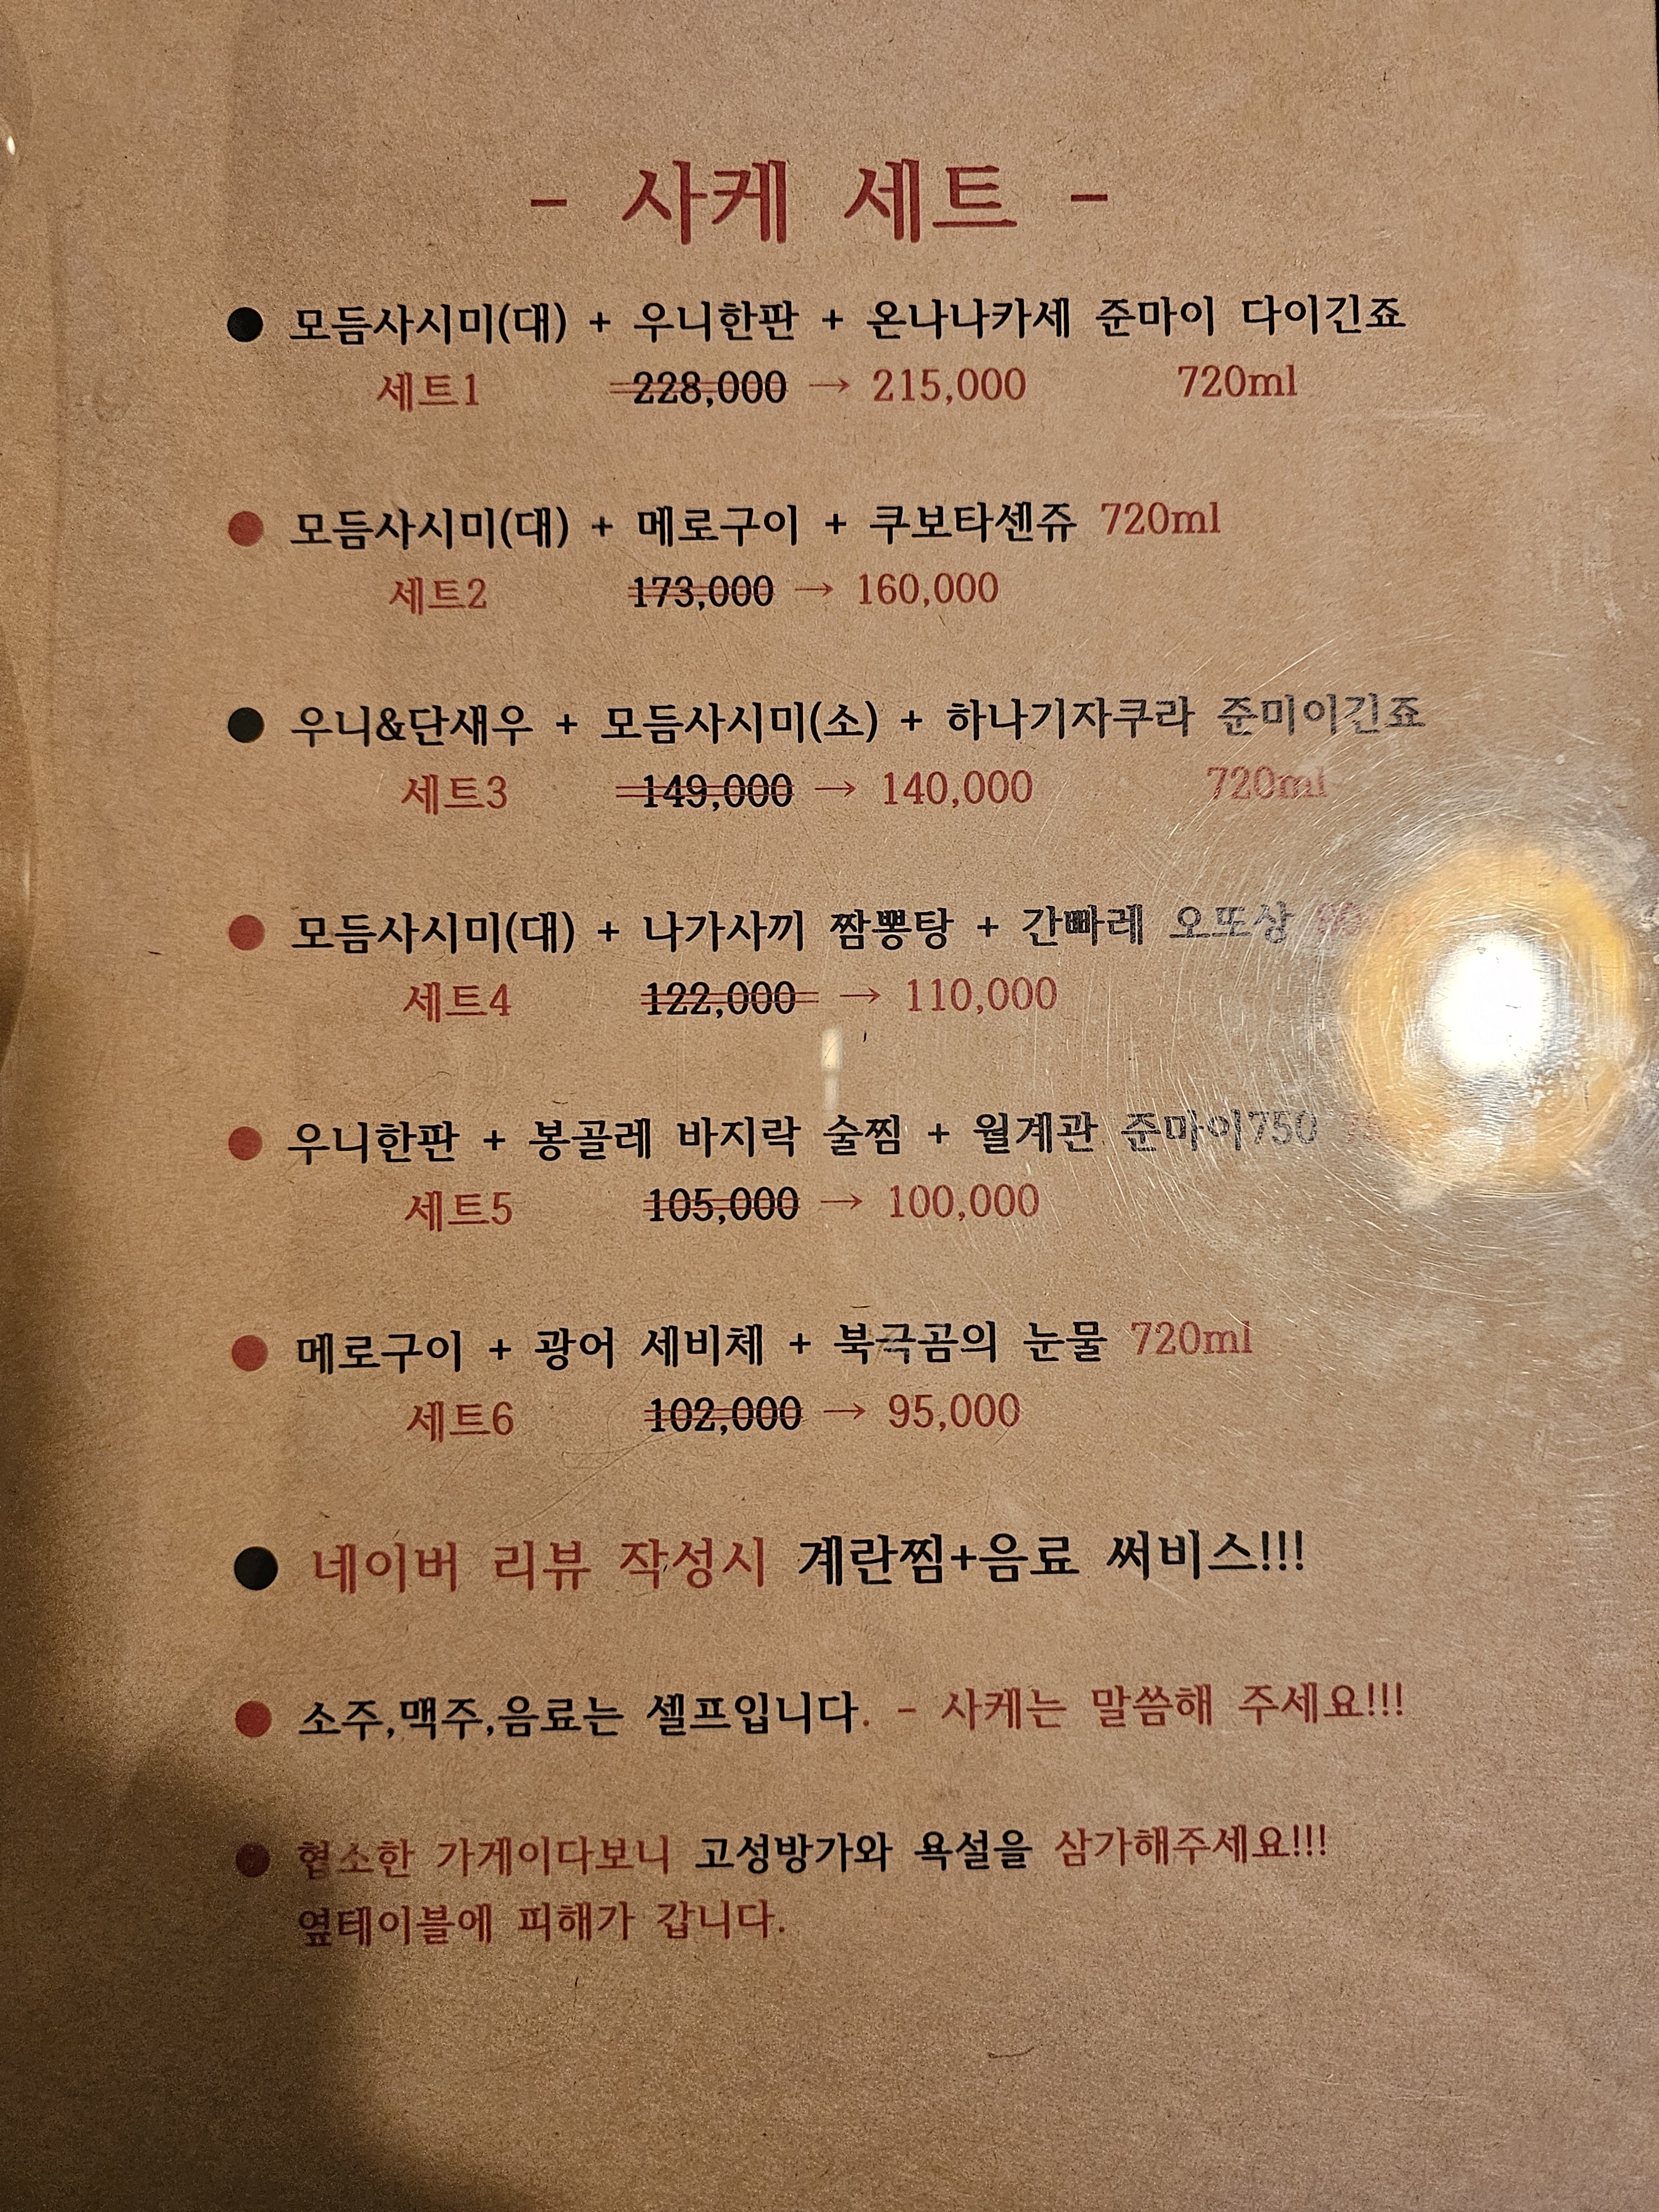 - 사케 세트 -
● 모듬사시미(대) + 우니한판 + 온나나카세 준마이 다이긴죠
세트1 228,000 → 215,000 720ml
● 모듬사시미(대) + 메로구이 + 쿠보타센쥬 720ml
세트2 173,000 → 160,000
● 우니&단새우 + 모듬사시미(소) + 하나기자쿠라 준미이긴죠
세트3 149,000 → 140,000 720ml
● 모듬사시미(대) + 나가사끼 짬뽕탕 + 간빠레 오또상
세트4 122,000 → 110,000
● 우니한판 + 봉골레 바지락 술찜 + 월계관 준마이750
세트5 105,000 → 100,000
● 메로구이 + 광어 세비체 + 북극곰의 눈물 720ml
세트6 102,000 → 95,000
● 네이버 리뷰 작성시 계란찜+음료 써비스!!!
● 소주,맥주,음료는 셀프입니다. - 사케는 말씀해 주세요!!!
● 협소한 가게이다보니 고성방가와 욕설을 삼가해주세요!!!
옆테이블에 피해가 갑니다.